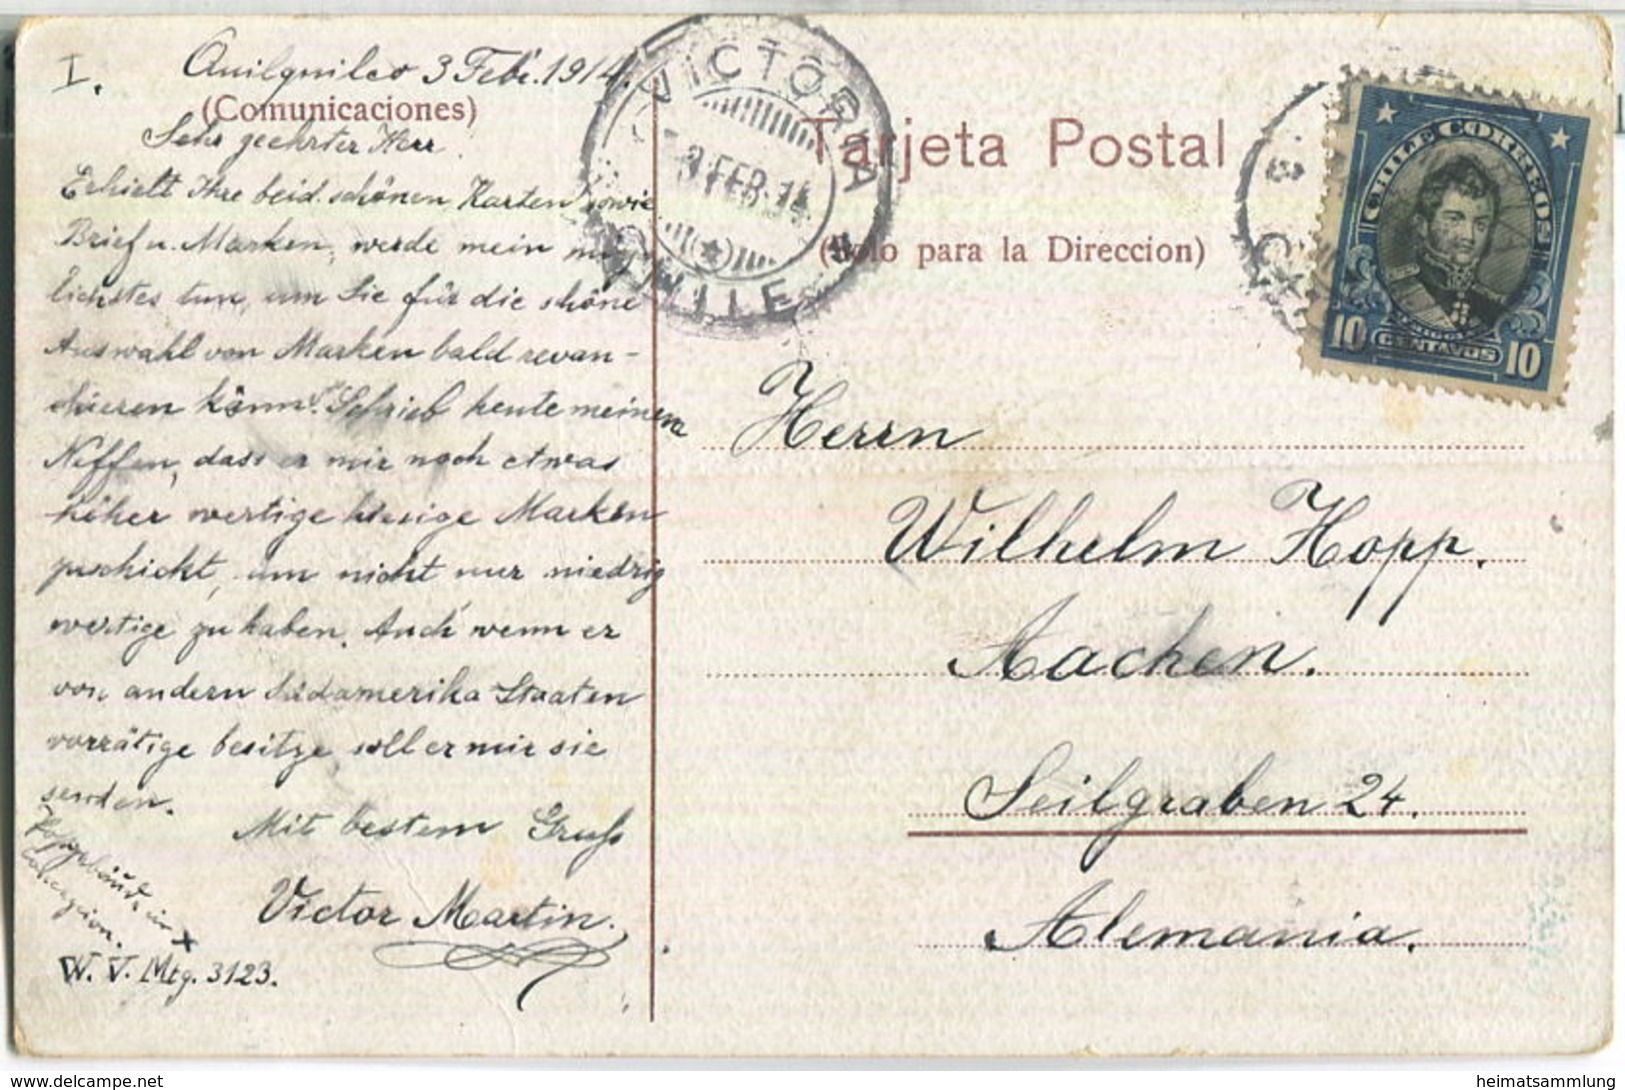 I.
Quilquilco 3 Febr. 1914.
(Comunicaciones)
Sehr geehrter Herr!
Erhielt Ihre beid. schönen Karten sowie
Brief u. Marken, werde mein mög-
lichstes tun, um Sie für die schöne
Auswahl von Marken bald revan-
chieren könn. Schrieb heute meinem
Neffen, dass er mir noch etwas
höher wertige hiesige Marken
schickt, um nicht nur niedrig
wertige zu haben. Auch wenn er
von andern Südamerika Staaten
vorrätige besitze soll er mir sie
senden.
Mit bestem Gruss
Victor Martin.
in
X
W. V. Mtg. 3123.
VICTORIA
3 FEB 14
CHILE
Tarjeta Postal
(Solo para la Direccion)
CHILE CORREOS
10 CENTAVOS 10
Herrn
Wilhelm Hopp.
Aachen.
Seilgraben 24.
Alemania.
www.delcampe.net
heimatsammlung